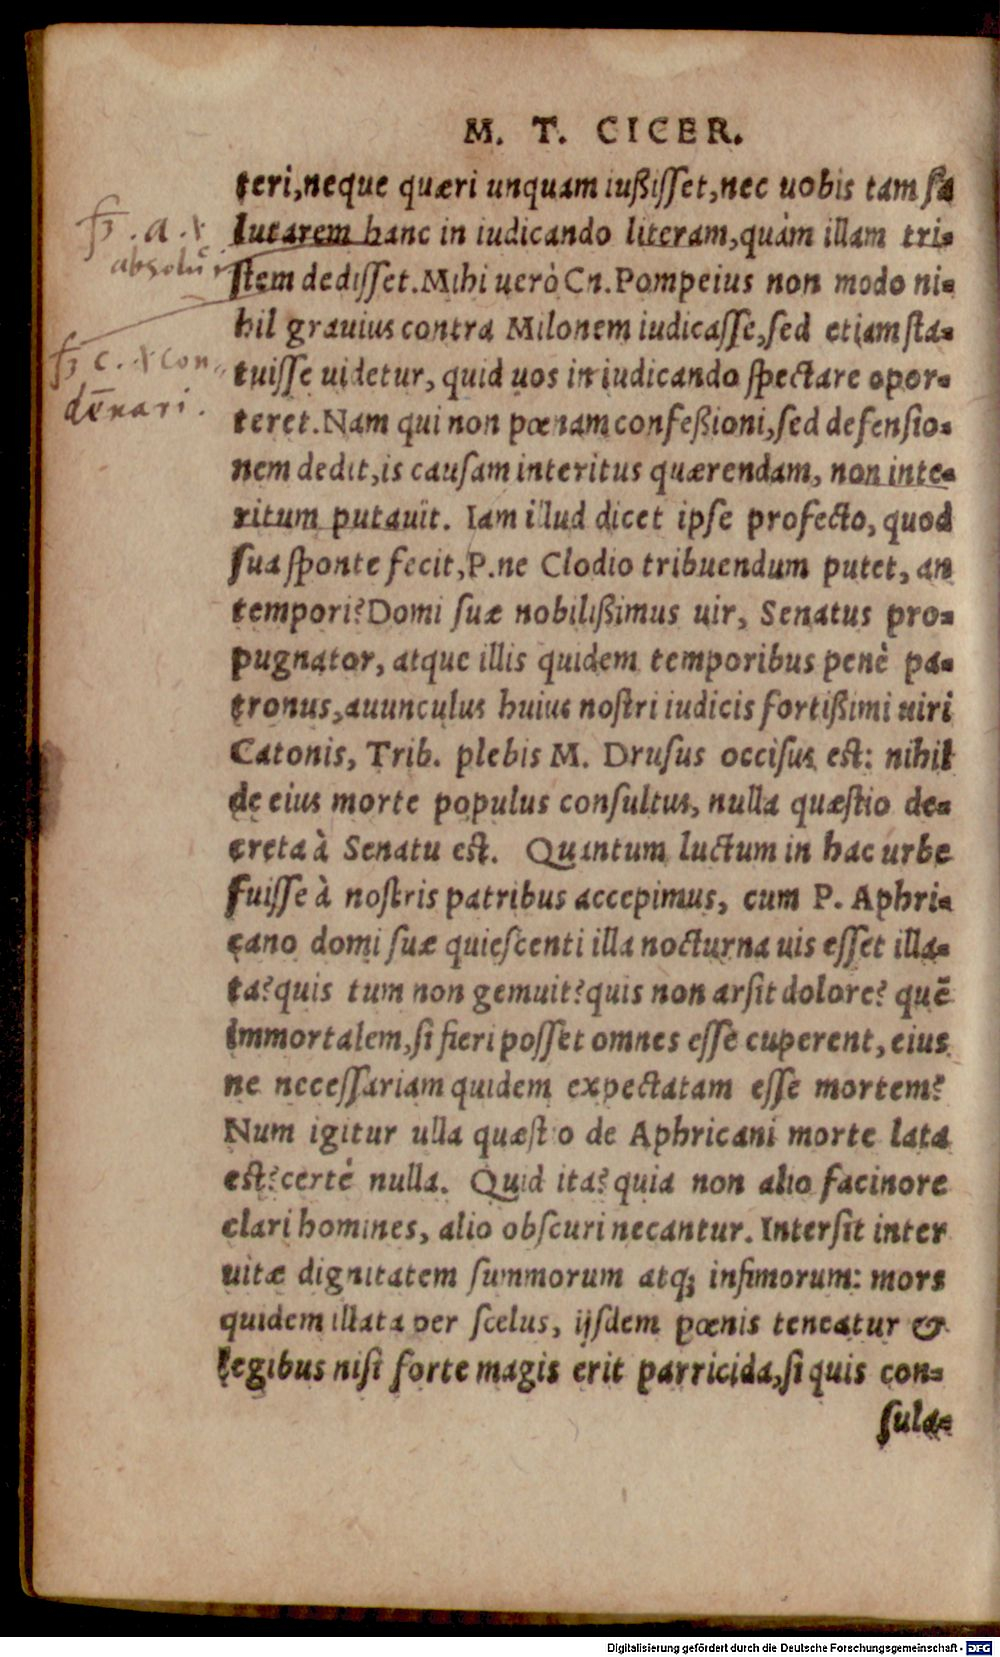 M. T. CICER.
teri,neque quæri unquam iußiſſet,nec uobis tam ſa
lutarem hanc in iudicando literam,quàm illam tri-
ſtem dediſſet.Mihi uerò Cn.Pompeius non modo ni-
hil grauius contra Milonem iudicaſſe,ſed etiam ſta-
tuiſſe uidetur, quid uos in iudicando ſpectare opor-
teret.Nam qui non pœnam confeßioni,ſed defenſio-
nem dedit,is cauſam interitus quærendam, non inte-
ritum putauit. Iam illud dicet ipſe profecto, quod
ſua ſponte fecit,P.ne Clodio tribuendum putet, an
tempori?Domi ſuæ nobilißimus uir, Senatus pro-
pugnator, atque illis quidem temporibus penè pa-
tronus,auunculus huius noſtri iudicis fortißimi uiri
Catonis, Trib. plebis M. Druſus occiſus eſt: nihil
de eius morte populus conſultus, nulla quæſtio de-
creta à Senatu eſt. Quantum luctum in hac urbe
fuiſſe à noſtris patribus accepimus, cum P. Aphri-
cano domi ſuæ quieſcenti illa nocturna uis eſſet illa-
ta?quis tum non gemuit?quis non arſit dolore? quē
immortalem,ſi fieri poſſet omnes eſſe cuperent, eius
ne neceſſariam quidem expectatam eſſe mortem?
Num igitur ulla quæſtio de Aphricani morte lata
eſt?certè nulla. Quid ita?quia non alio facinore
clari homines, alio obſcuri necantur. Interſit inter
uitæ dignitatem ſummorum atq; infimorum: mors
quidem illata per ſcelus, ijſdem pœnis teneatur &
legibus niſi forte magis erit parricida,ſi quis con-
ſula-
.a.
abſolu
c. con
dēnari.
Digitalisierung gefördert durch die Deutsche Forschungsgemeinschaft - DFG